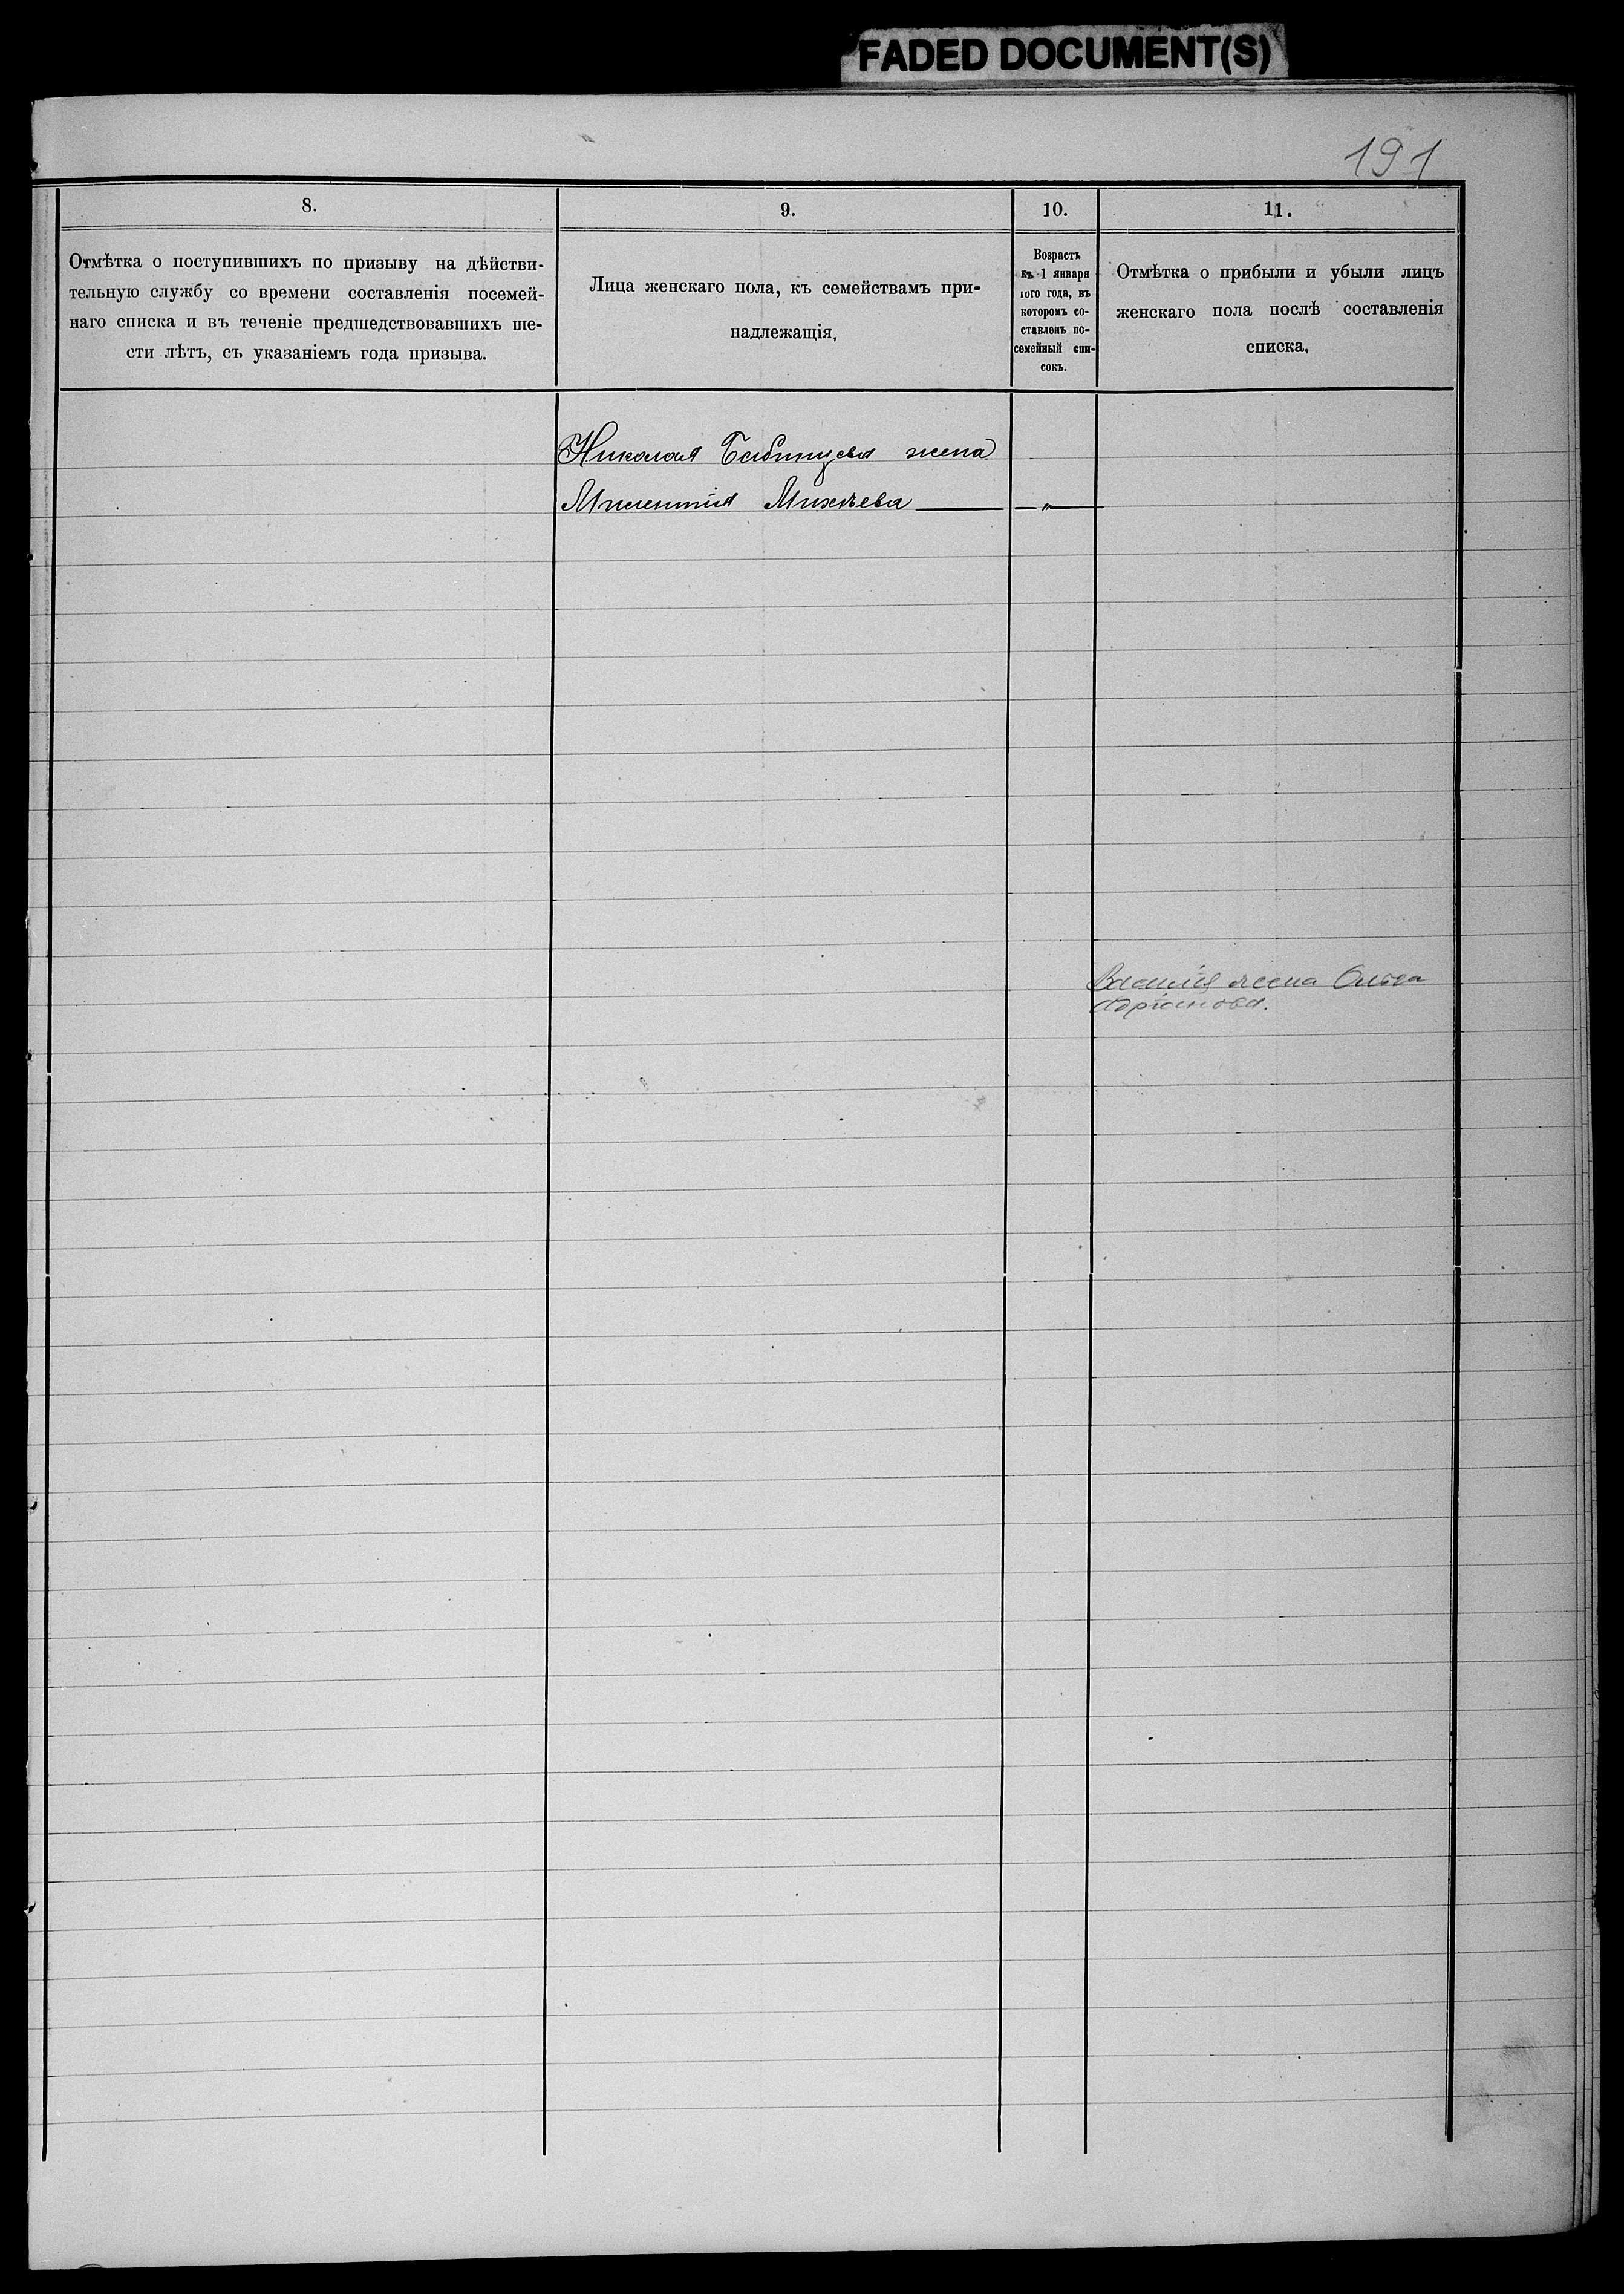 FADED DOCUMENT(S)
191
8.
9.
10.
11.
Отмѣтка о поступившихъ по призыву на дѣйстви-
тельную службу со времени составленія посемей-
наго списка и въ теченіе предшедствовавшихъ ше-
сти лѣтъ, съ указаніемъ года призыва.
Лица женскаго пола, къ семействамъ при-
надлежащія,
Возрастъ
къ 1 января
того года, въ
которомъ со-
ставленъ по-
семейный спи-
сокъ.
Отмѣтка о прибыли и убыли лицъ
женскаго пола послѣ составленія
списка,
Николая жена
Михѣева — „ —
Василія жена Ольга
Адріанова.